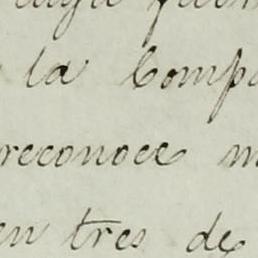 la Comp
reconoce m
en tres de